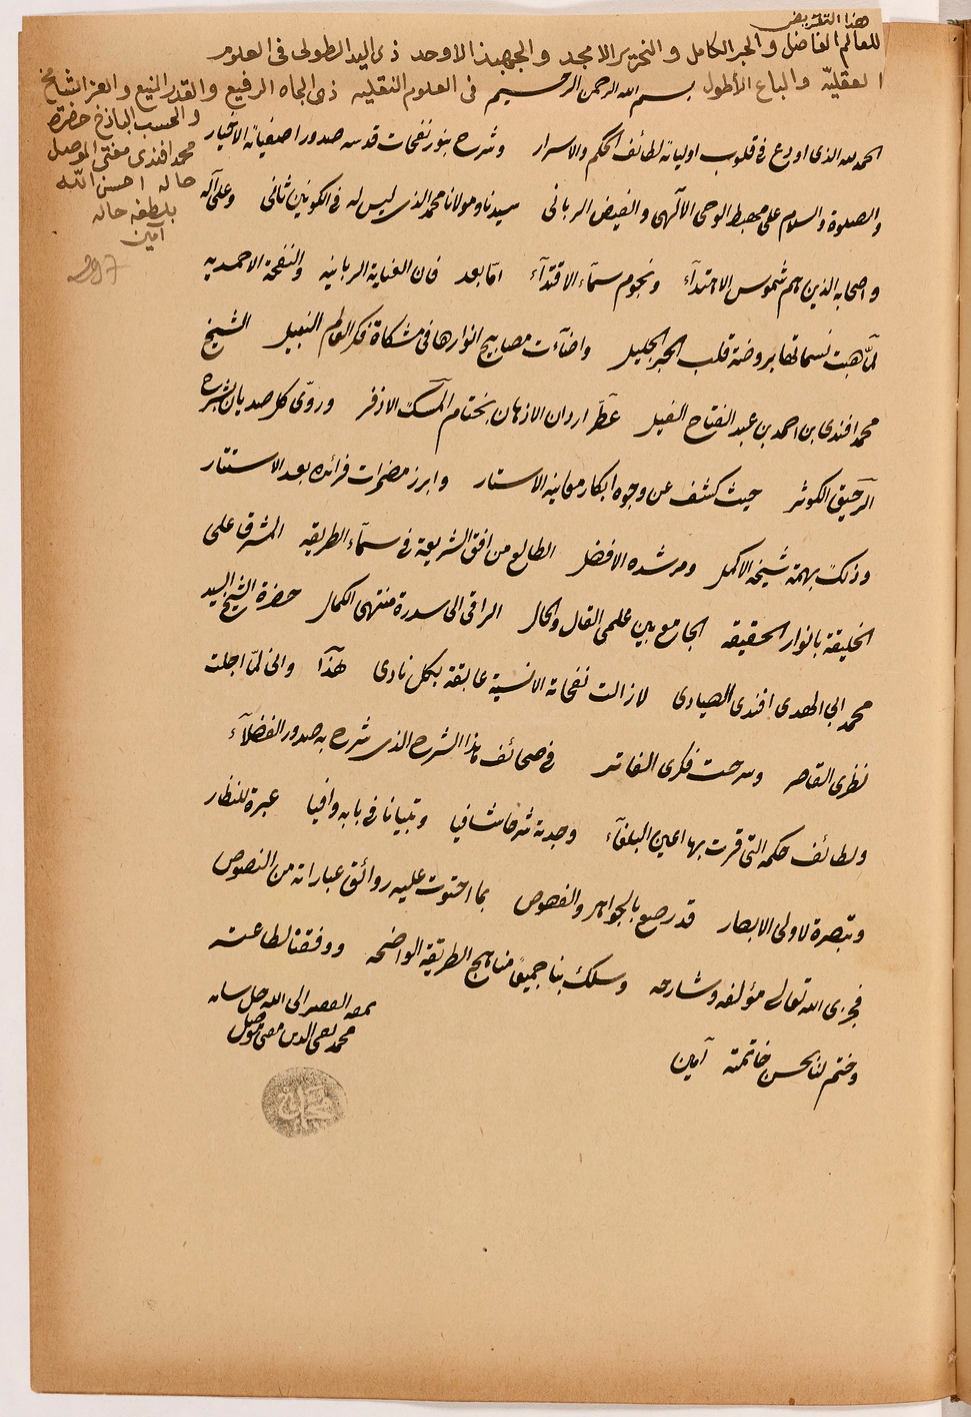 هذا التقريض
للعالم الفاضل والحبر الكامل والنحرير الامجد والجهبذ الاوحد ذى اليد الطولى فى العلوم
العقليّه والباع الأطول بسم الله الرحمن الرحيم فى العلوم النقليه ذى الجاه الرفيع والقدر المنيع والعز الشامخ
والحسب الباذخ حضرة
محمد افندى مفتى الموصل
حاله احسن الله
بلطفه حاله
آمين
297
الحمد لله الذى اودع فى قلوب اوليائه لطائف الحكم والاسرار وشرح بنور نفحات قدسه صدور اصفيائه الاخيار
والصلوة والسلام على مهبط الوحى الآلهى والفيض الربانى سيدنا ومولانا محمد الذى ليس له فى الكونين ثانى وعلى آله
واصحابه الذين هم شموس الاهتدآء ونجوم سمآء الاقتدآء امّا بعد فان العناية الربانيه والنفحة الاحمديه
لمّا هبت نسماتها بروضة قلب الحبر الجليل واضآءت مصابيح انوارها فى مشكاة فكر العالم النبيل الشيخ
محمد افندى بن احمد بن عبد الفتاح الفيل عطّر اردان الاذهان بختام المسك الاذفر وروّى كل صديان بشرح
الرحيق الكوثر حيث كشف عن وجوه ابكار معانيه الاستار وابرز مضمرات فرائده بعد الاستتار
وذلك بهمة شيخه الاكمل ومرشده الافضل الطالع من افق الشريعة فى سمآء الطريقه المشرق على
الخليقة بانوار الحقيقه الجامع بين علمى القال والحال الراقى الى سدرة منتهى الكمال حضرة الشيخ السيد
محمد ابى الهدى افندى الصيادى لا زالت نفحاته الانسية عابقة بكل نادى هذا وانى لمّا اجلت
نظرى القاصر وسرحت فكرى الفاتر فى صحائف هذا الشرح الذى شرح به صدور الفضلآء
ولطائف حكمه التى قرت بها اعين البلغآء وجدته شرحا شافيا وتبيانا فى بابه وافيا عبرة للنظار
وتبصرة لاولى الابصار قد رصع بالجواهر والفصوص بما احتوت عليه روائق عباراته من النصوص
فجزى الله تعالى مؤلفه وشارحه وسلك بنا جميعًا مناهج الطريقة الواضحه ووفقنا لطاعته
وختم لنا بحسن خاتمته آمين
الى الله جل
محمد